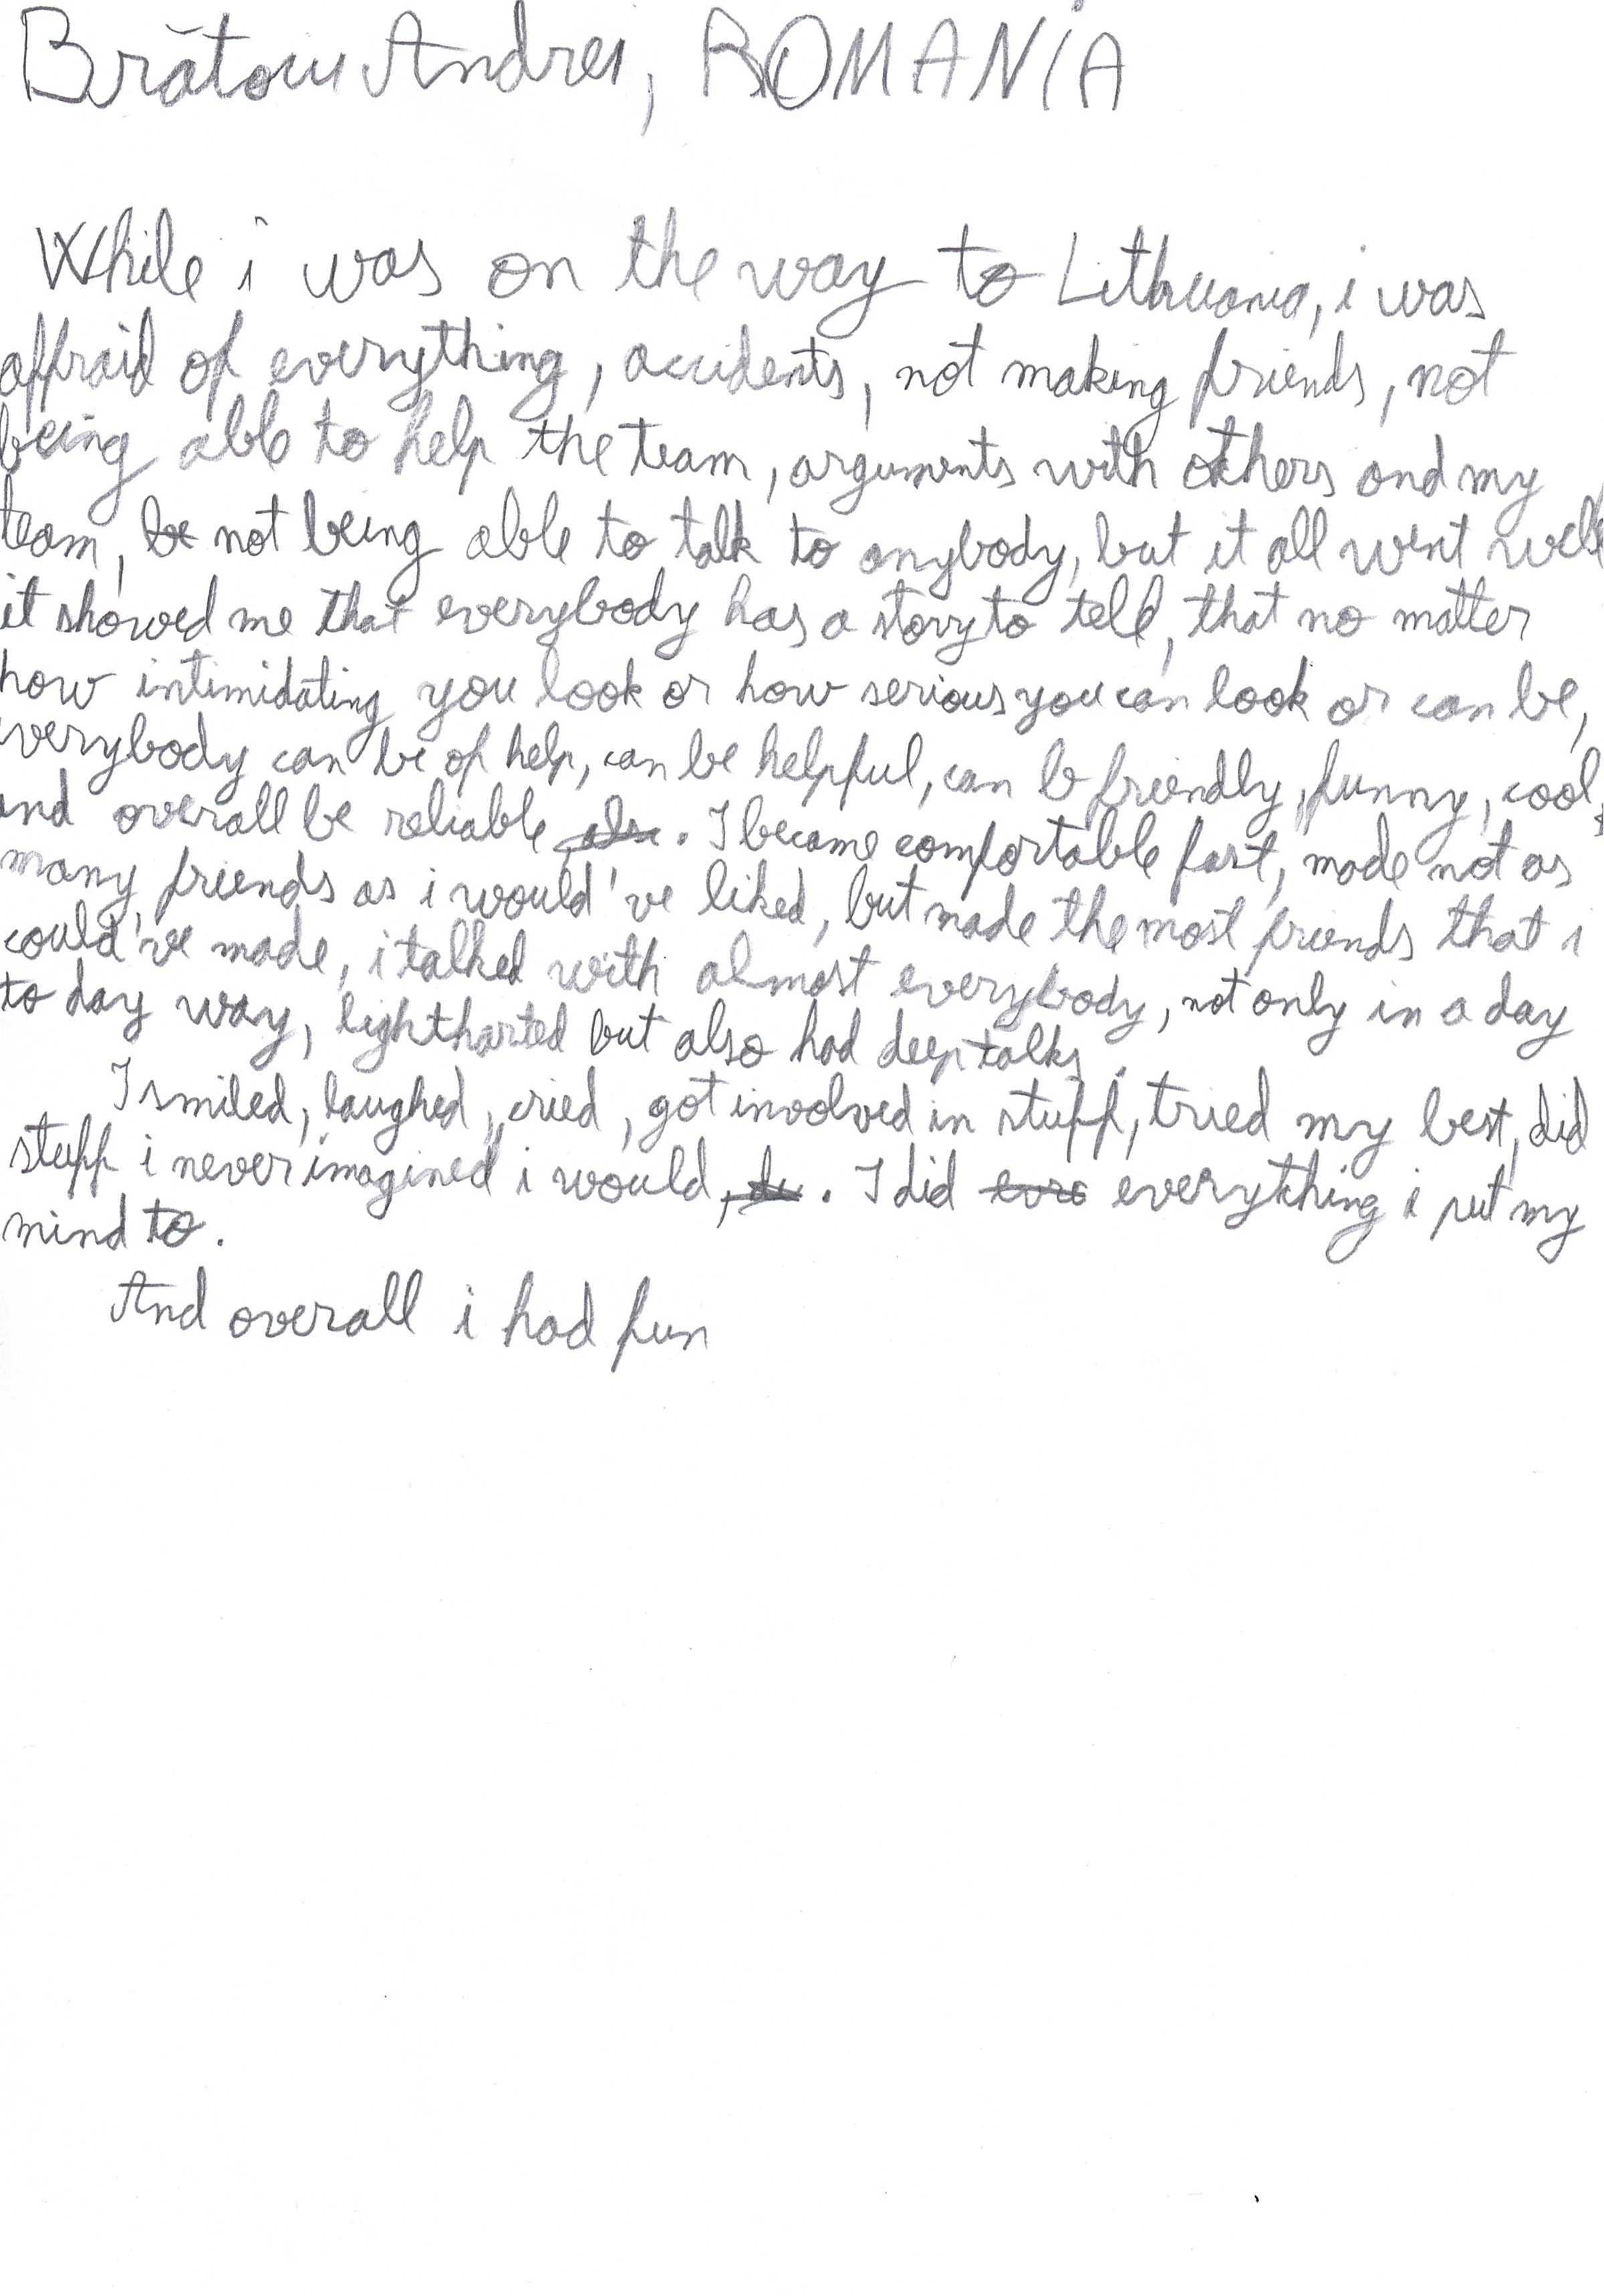 Brătoiu Andrei, ROMANIA
While i was on the way to Lithuania, i was
affraid of everything, accidents, not making friends, not
being able to help the team, arguments with others and my
team, be not being able to talk to anybody, but it all went well
it showed me that everybody has a story to tell, that no matter
how intimidating you look or how serious you can look or can be,
verybody can be of help, can be helpful, can b friendly, funny, cool,
and overall be reliable, . I became comfortable fast, made not as
many friends as i would've liked, but made the most friends that i
could've made, i talked with almost everybody, not only in a day
to day way, lightharted but also had deep talks.
I smiled, laughed, cried, got involved in stuff, tried my best, did
stuff i never imagined i would, . I did evre everything i put my
mind to.
And overall i had fun